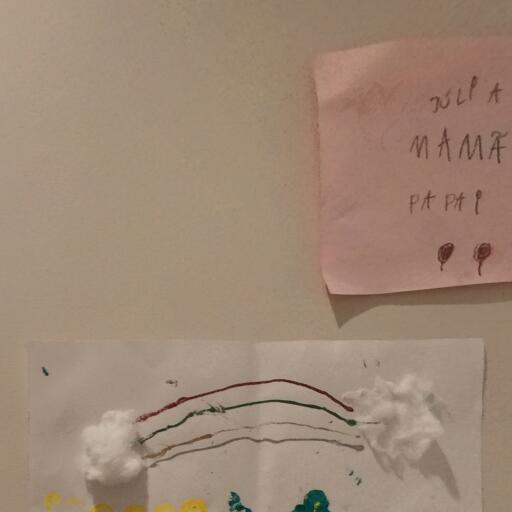 JULIA
MAMÃ
PAPAI